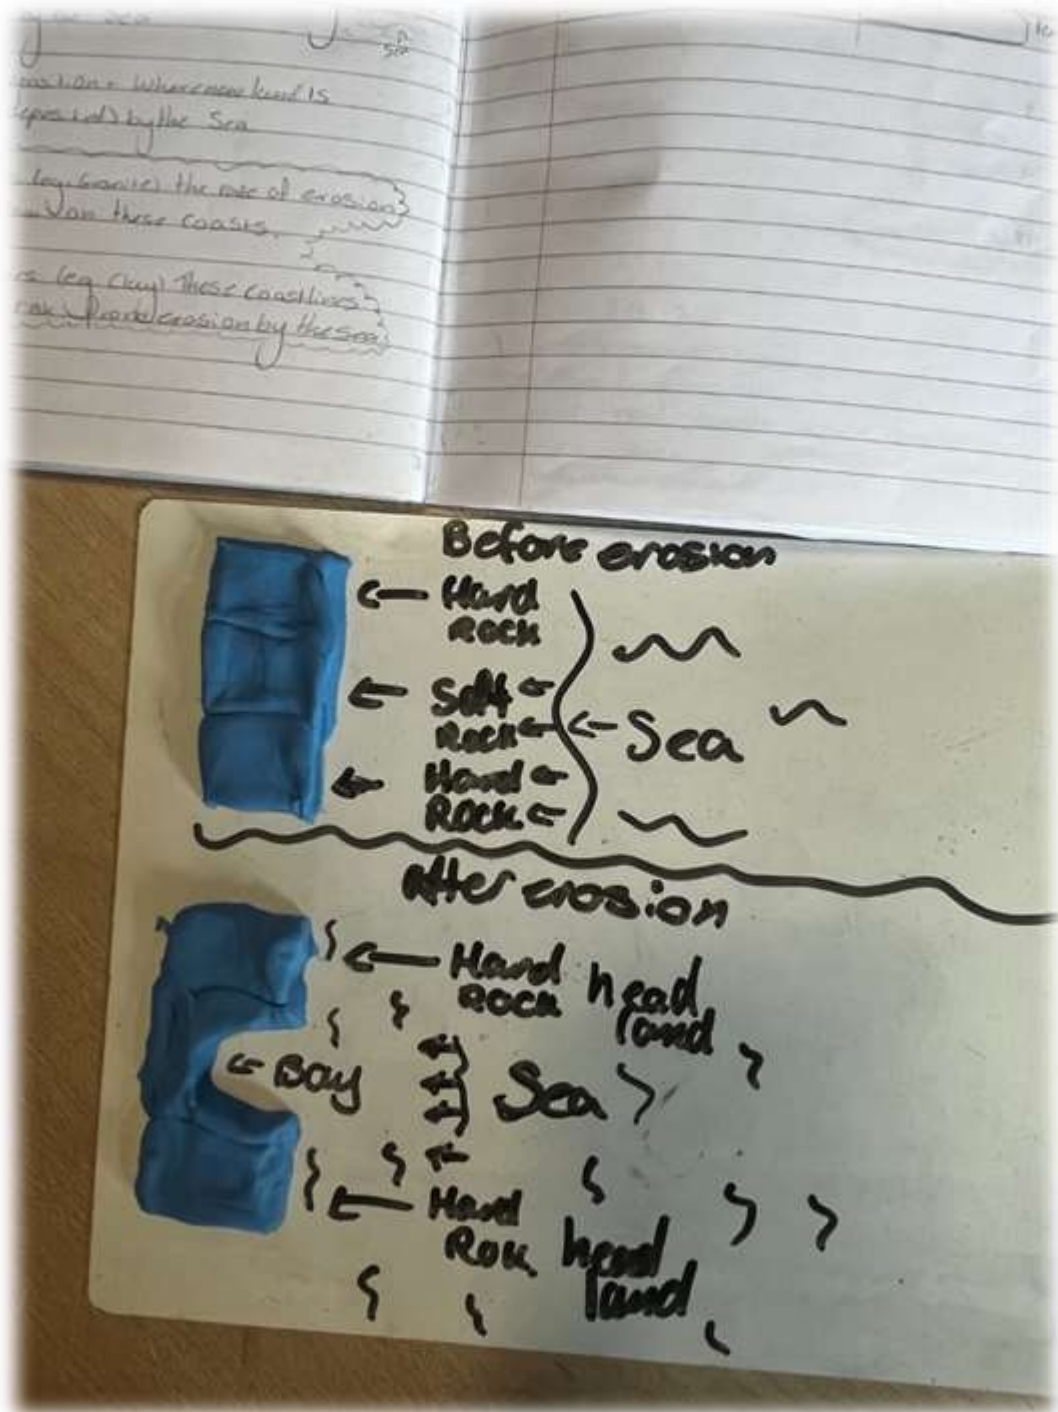 by the Sea
(eg. Granite) the rate of erosion
on these coasts.
(eg Clay) These coastlines
erosion by the sea
Before erosion
Hard
Rock
Soft
Rock
Sea
Hard
Rock
After erosion
Hard head
Rock land
Bay
Sea
Hard
Rok head
land